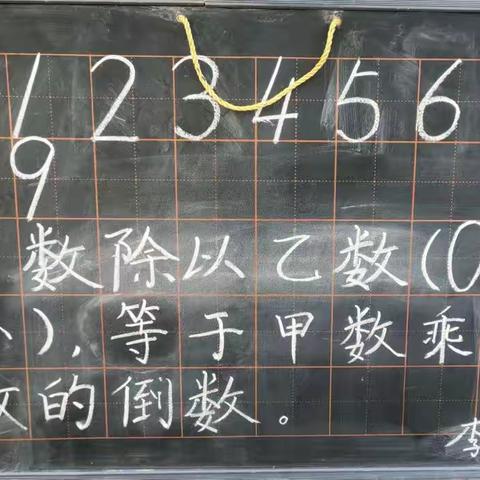 1 2 3 4 5 6
9
数除以乙数(0
),等于甲数乘
的倒数。
李